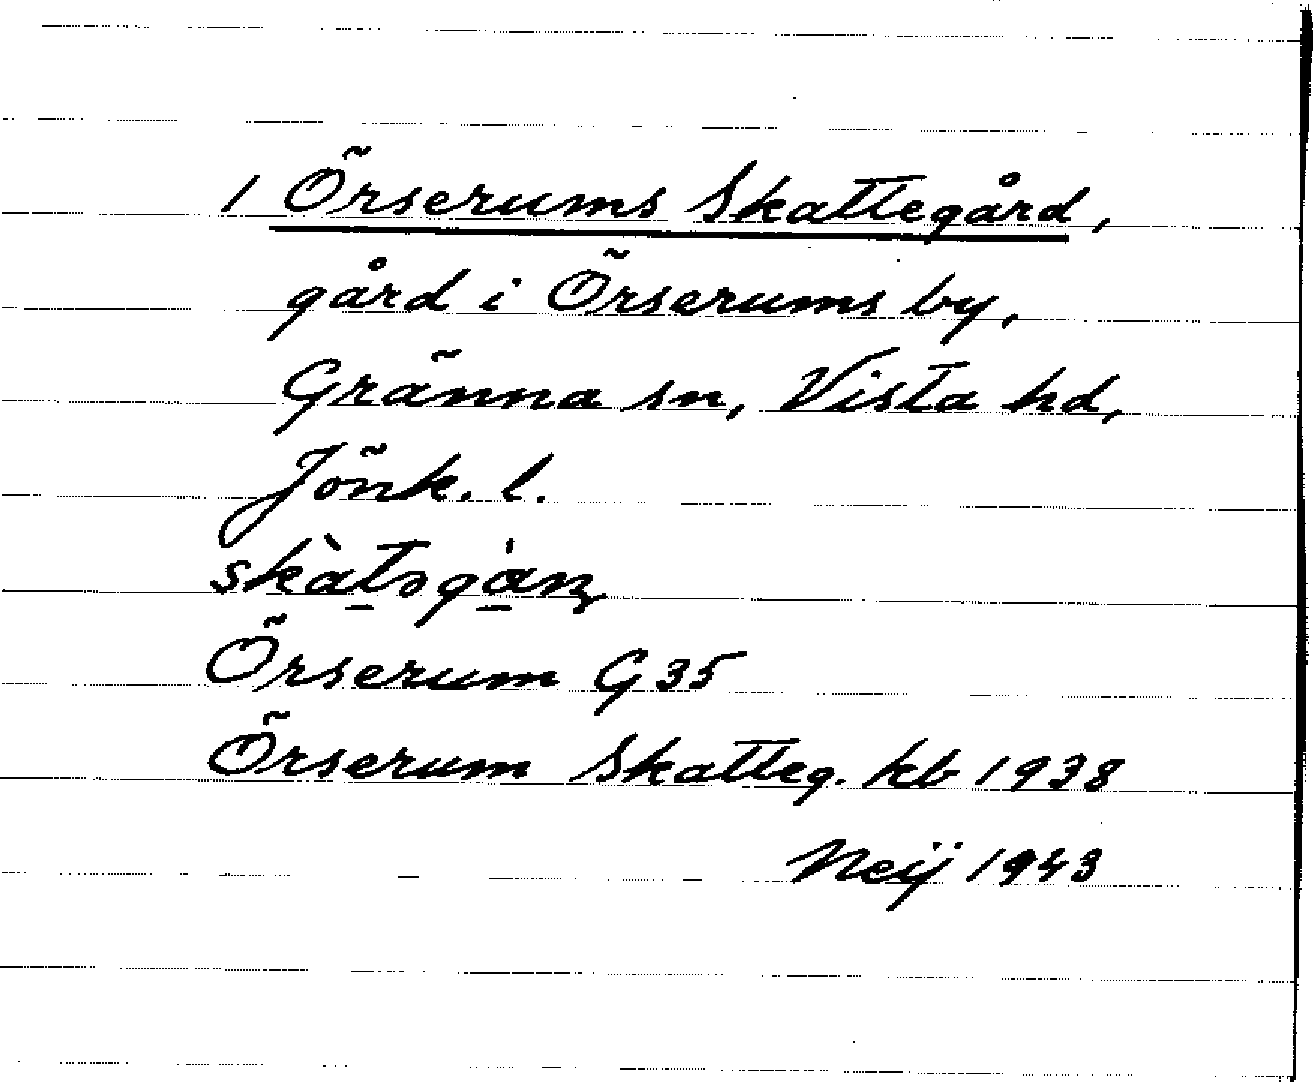 1 Örserums Skattegård,
gård i Örserums by,
Gränna sn, Vista hd,
Jönk. l.
Örserum G 35
Örserum Skatteg. kb 1938
Neij 1943